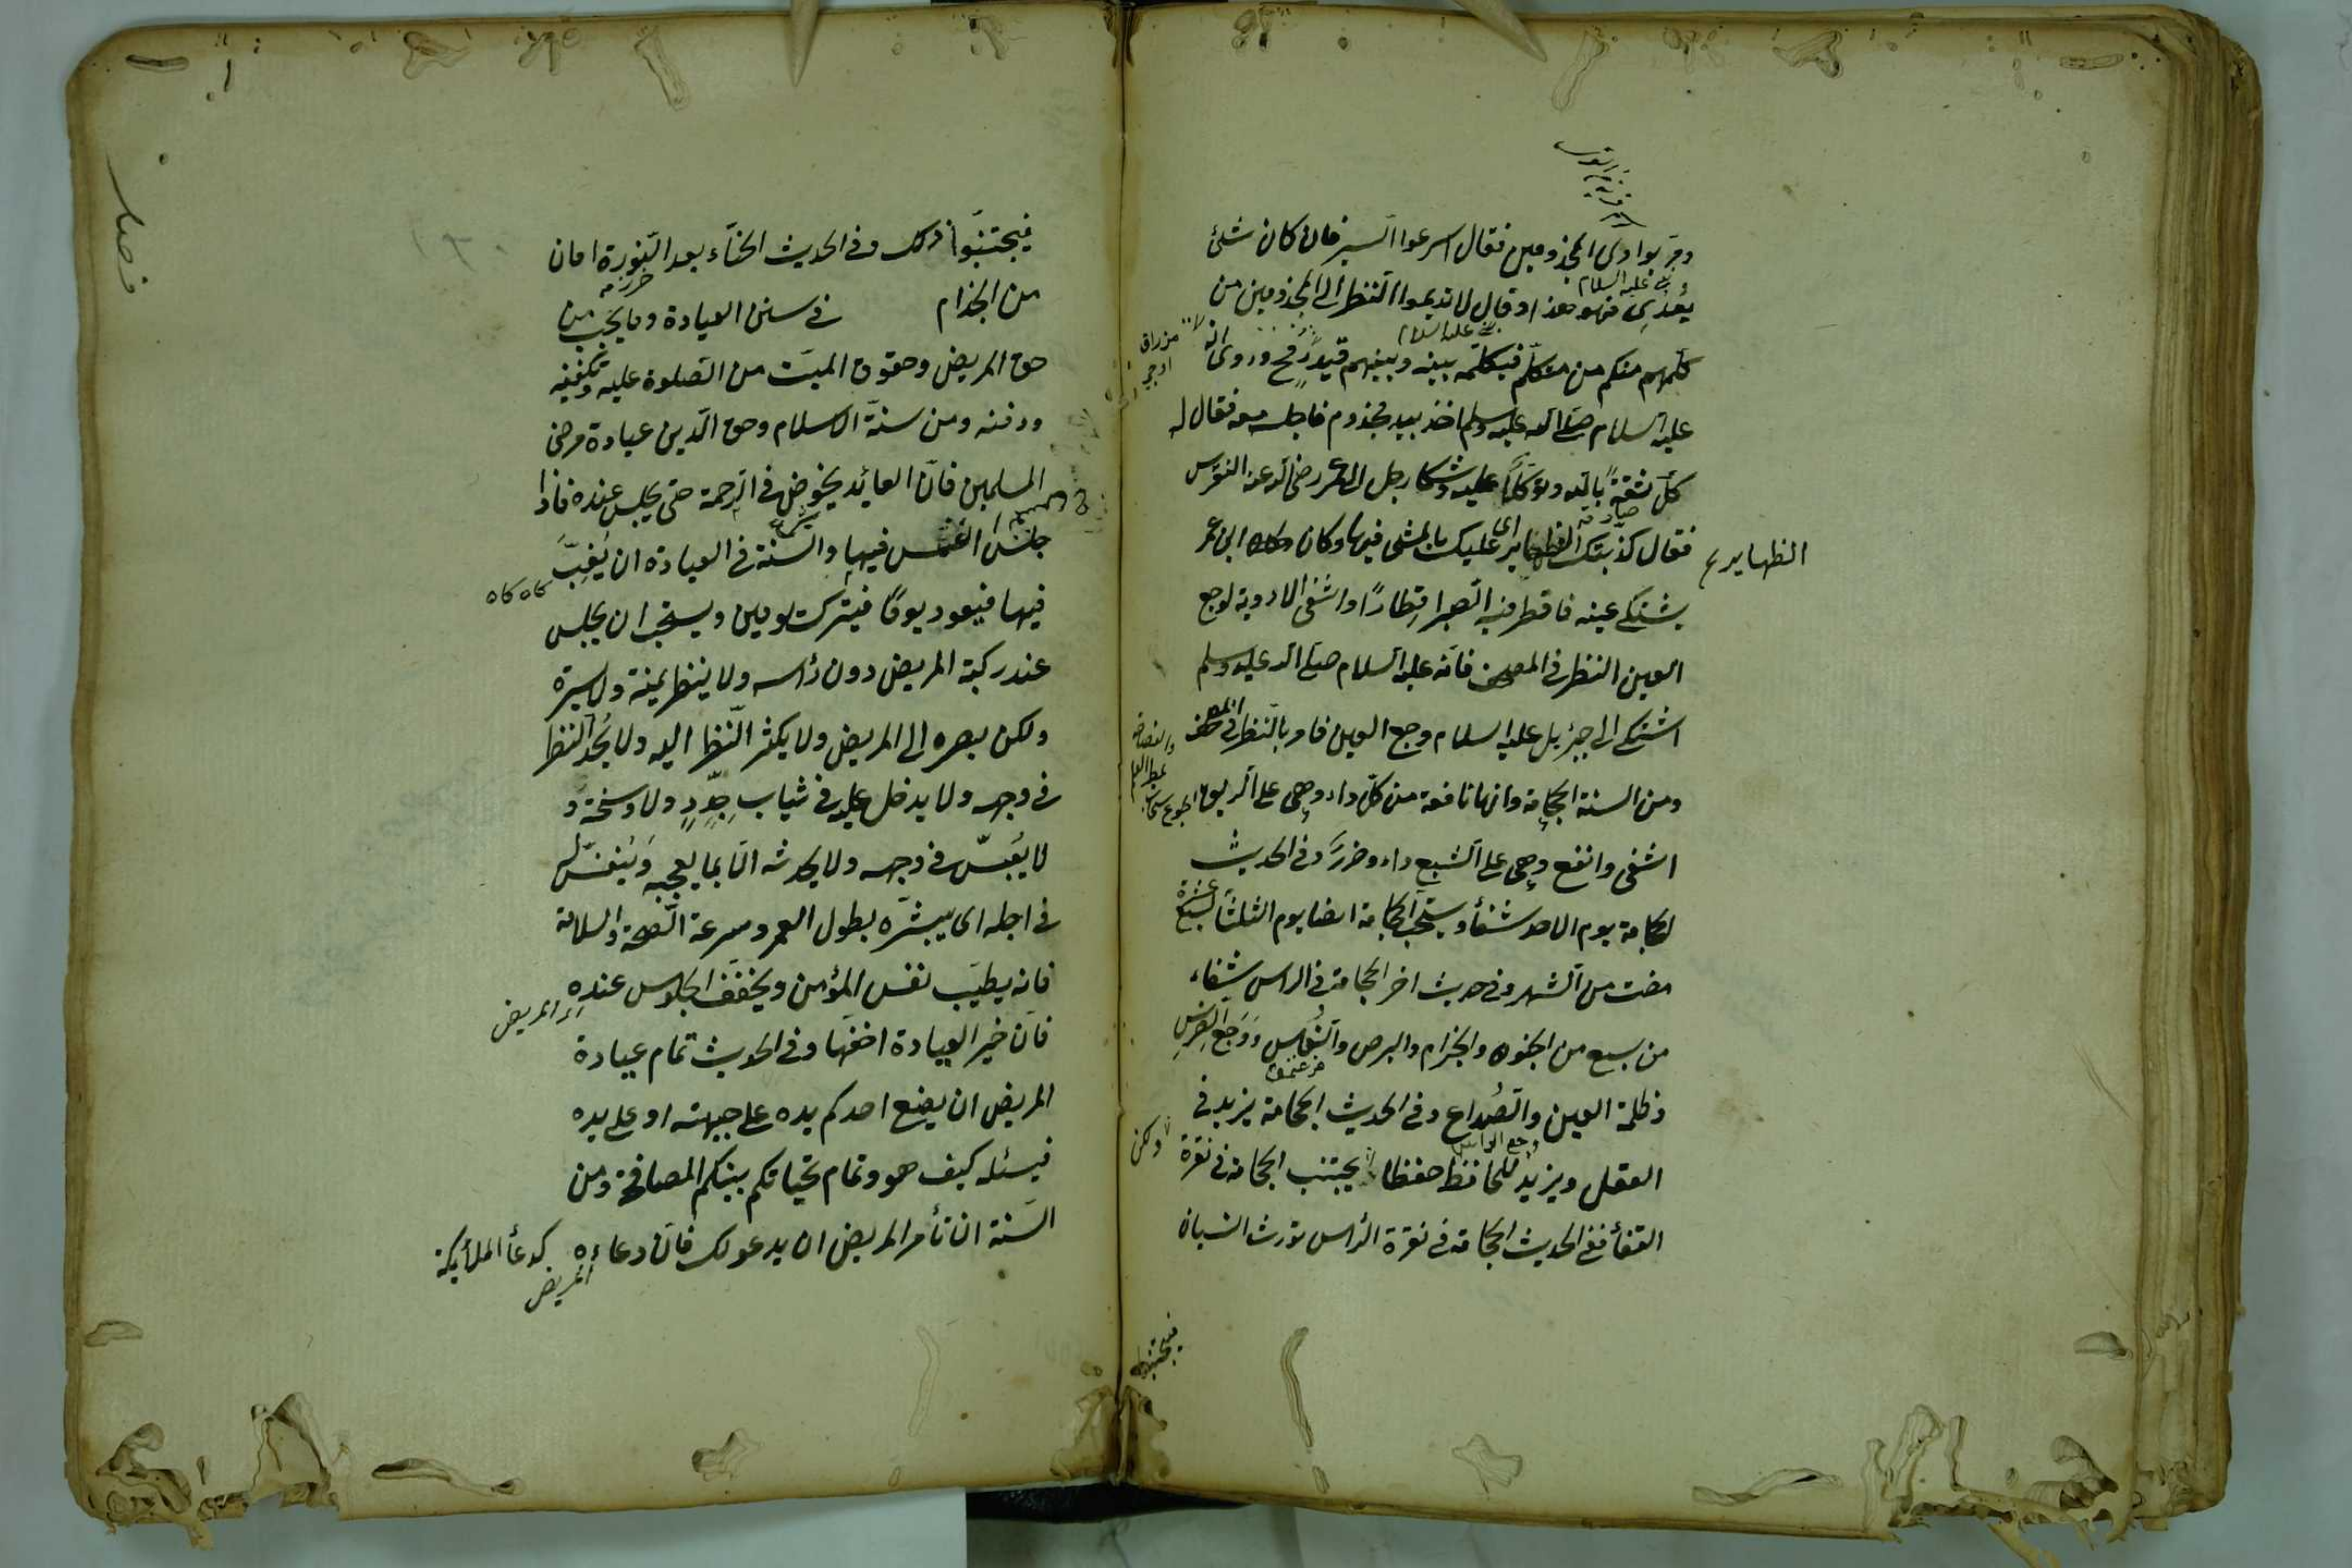 ومر بوادى المجذومين فقال اسرعوا السير فان كان شئ
يعدى فهو هذا وقال لا تديموا النظر الى المجذومين من
كلمهم منكم من متكلم فيكلمه بينه وبينهم قيد رمح وروى انه
عليه السلام صلى الله عليه وسلم اخذ بيد مجذوم فاجلسه معه فقال له
كل ثقة بالله وتوكلا عليه وشكا رجل الى عمر رضى الله عنه النقرس
فقال كذبتك الظهاير اى عليك بالمشى فيها وكان ابن عمر
الظهاير
يشتكى عينه فاقطر فيه الصبر اقطارا واشفى الادوية لوجع
العين النظر فى المصحف فانه عليه السلام صلى الله عليه وسلم
اشتكى الى جبرئيل عليه السلام وجع العين فامر بالنظر فى المصحف
ومن السنة الحجامة وانها نافعة من كل داء وهى على الريق
اشفى وانفع وهى على الشبع داء وضرر وفى الحديث
الحجامة يوم الاحد شفأ ويستحب الحجامة ايضا يوم الثلثا لسبع عشرة
مضت من الشهر وفى حديث اخر الحجامة فى الراس شفاء
من سبع من الجنون والجذام والبرص والنعاس ووجع الضرس
وظلمة العين والصداع وفى الحديث الحجامة يزيد فى
العقل ويزيد للحافظ حفظا ولكن يجتنب الحجامة فى نقرة
القفأ ففى الحديث الحجامة فى نقرة الراس تورث النسيان
فيجتنبوا
فيجتنبوا ذلك وفى الحديث الحناء بعد النورة امان
من الجذام فى سنن العيادة وما يجب من
فصل
حق المريض وحقوق الميت من الصلوة عليه وتكفينه
ودفنه ومن سنة الاسلام وحق الدين عيادة مرضى
المسلمين فان العائد يخوض فى الرحمة حتى يجلس عنده فاذا
جلس انغمس فيها والسنة فى العيادة ان يغب
كاه كاه
فيها فيعود يوما فيترك يومين ويستحب ان يجلس
عند ركبة المريض دون رأسه ولا ينظر يمنة ولا يسرة
ولكن بصره الى المريض ولا يكثر النظر اليه ولا يحد النظر
فى وجهه ولا يدخل عليه فى ثياب جدد ولا وسخة و
لا يعبس فى وجهه ولا يحدثه الا بما يعجبه وينفس له
فى اجله اى يبشره بطول العمر وسرعة الصحة والسلامة
فانه يطيب نفس المؤمن ويخفف الجلوس عنده
المريض
فان خير العيادة اخفها وفى الحديث تمام عيادة
المريض ان يضع احدكم يده على جبهته او على يده
فيسئله كيف هو وتمام تحياتكم بينكم المصافحة ومن
السنة ان تأمر المريض ان يدعو لك فان دعاءه كدعأ الملأيكة
المريض